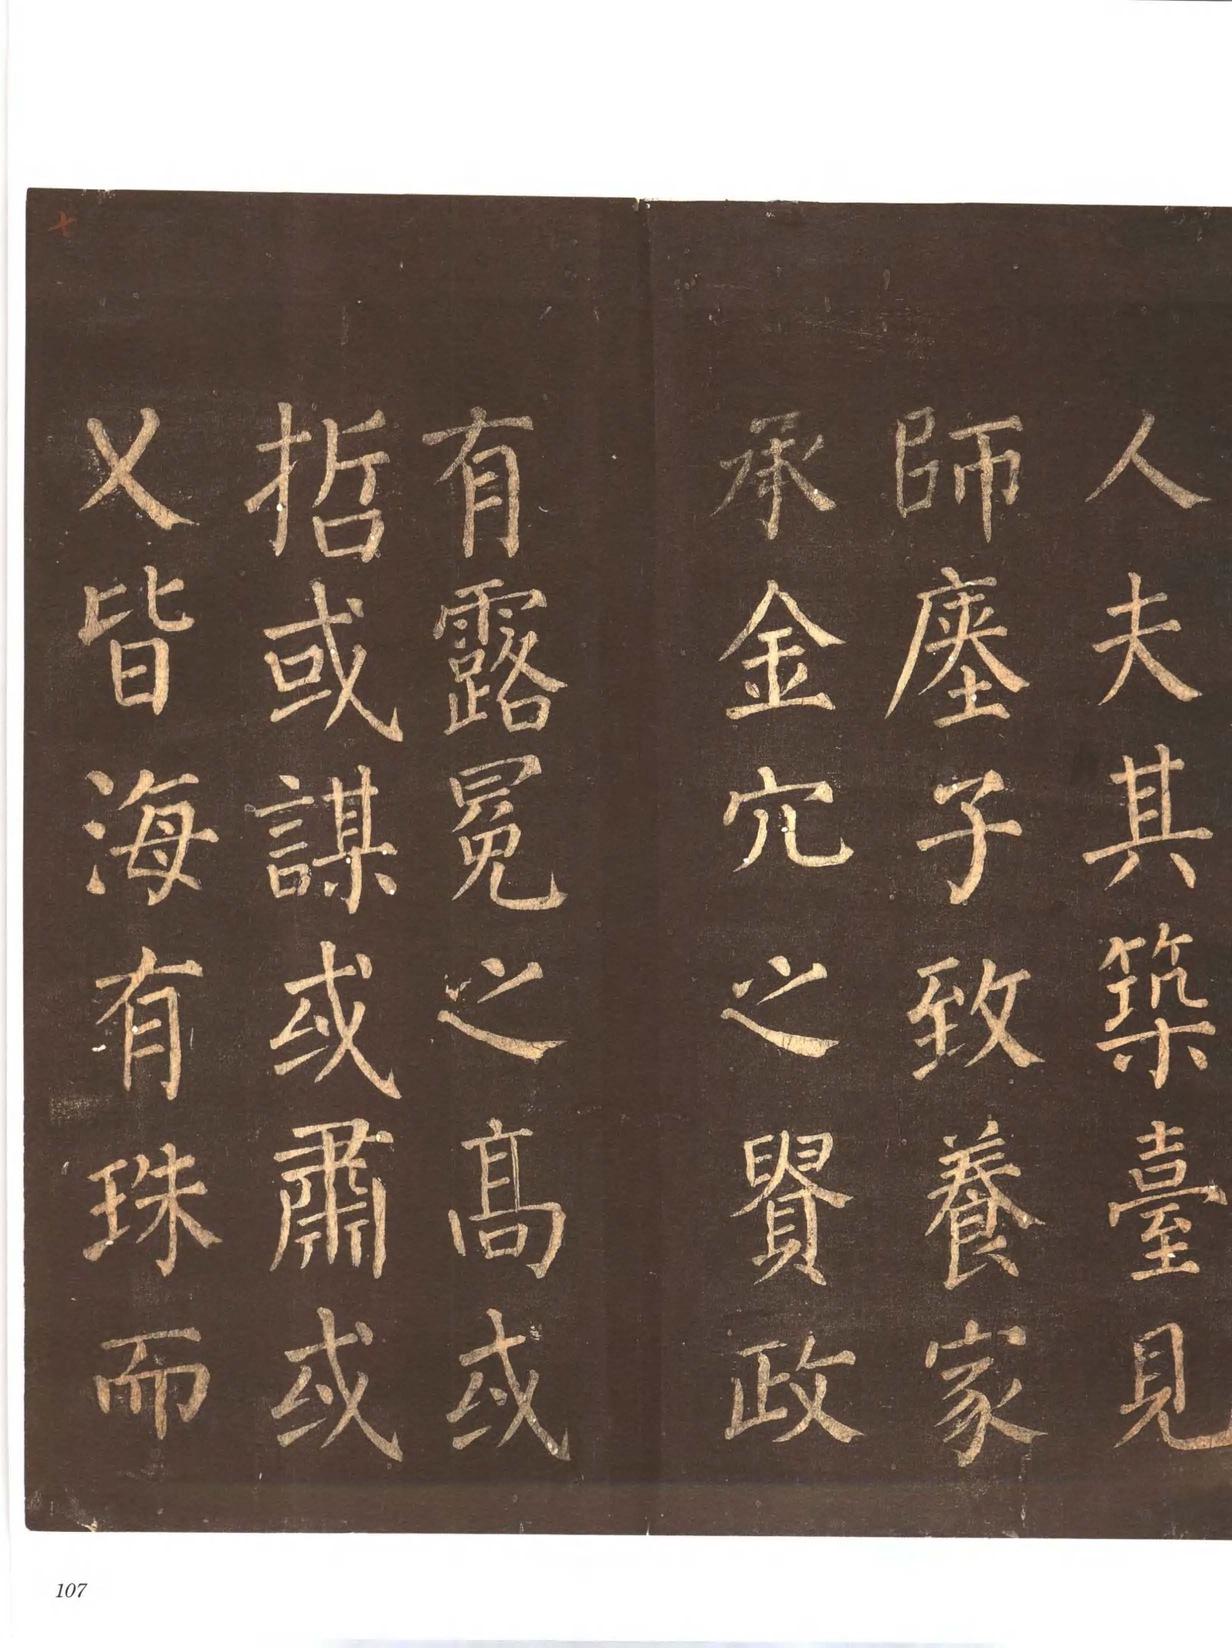 人夫其築臺見
師廛子致養家
承金穴之賢政
有露冕之髙或
哲或謀或肅或
乂皆海有珠而
107